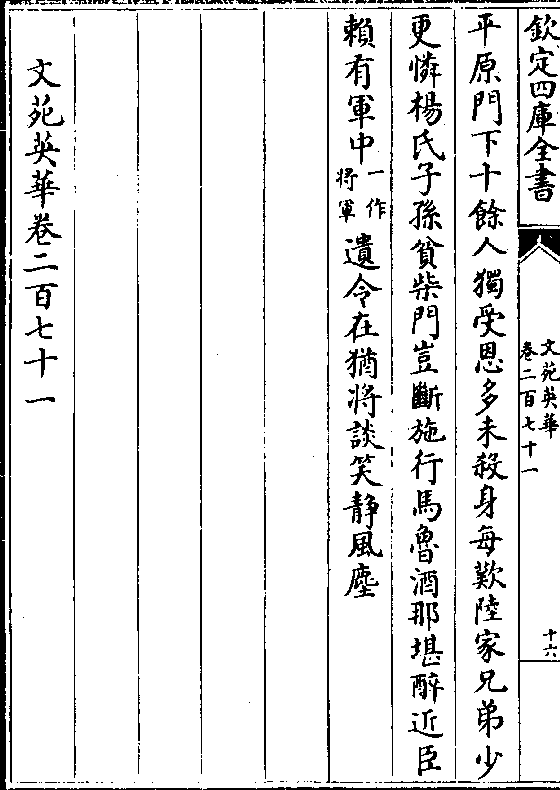 欽定四庫全書
文苑英華
卷二百七十一
十六
平原門下十餘人獨受恩多未殺身每歎陸家兄弟少
更憐楊氏子孫貧柴門豈斷施行馬魯酒那堪醉近臣
賴有軍中一作將軍遺令在猶將談笑静風塵
文苑英華卷二百七十一